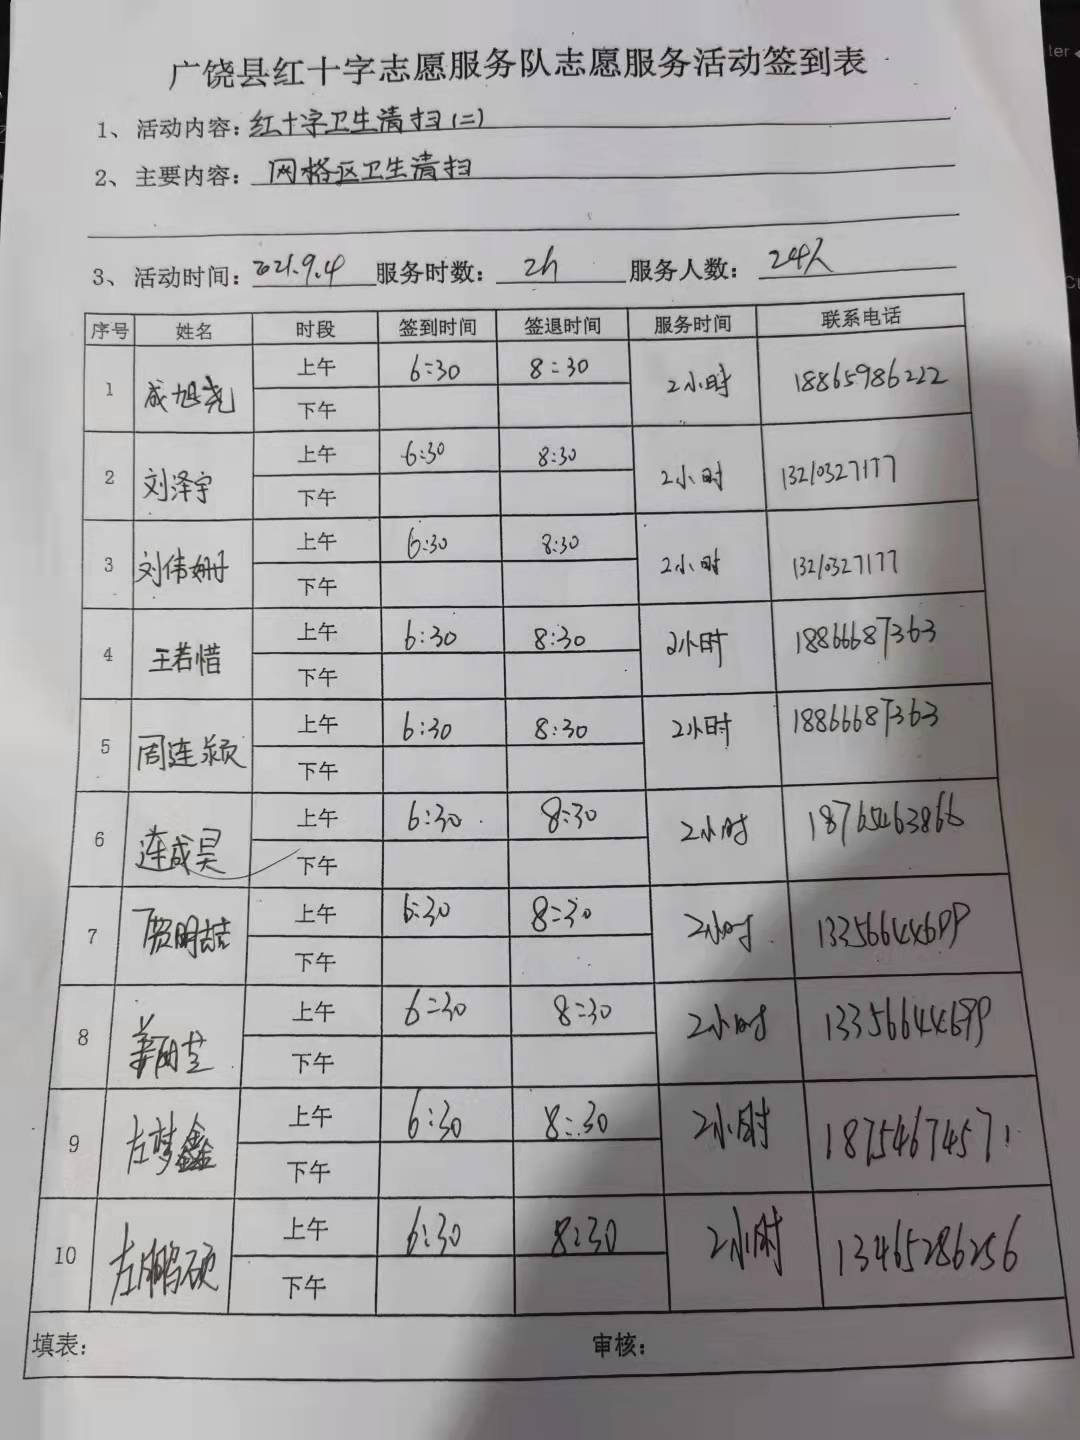 广饶县红十字志愿服务队志愿服务活动签到表
1、活动内容：红十字卫生清扫(二)
2、主要内容：网格区卫生清扫
3、活动时间：2021.9.4 服务时数：2h 服务人数：24人
序号 姓名 时段 签到时间 签退时间 服务时间 联系电话
1 成旭尧 上午 6:30 8:30 2小时 18865986222
下午
2 刘泽宇 上午 6:30 8:30 2小时 13210327177
下午
3 刘伟姗 上午 6:30 8:30 2小时 13210327177
下午
4 王若惜 上午 6:30 8:30 2小时 18866687363
下午
5 周连颍 上午 6:30 8:30 2小时 18866687363
下午
6 连成昊 上午 6:30 8:30 2小时 18765463866
下午
7 贾明喆 上午 6:30 8:30 2小时 13356644699
下午
8 上午 6:30 8:30 2小时 13356644699
下午
9 左梦鑫 上午 6:30 8:30 2小时 18754674571
下午
10 左鹏硕 上午 6:30 8:30 2小时 13465286256
下午
填表： 审核：